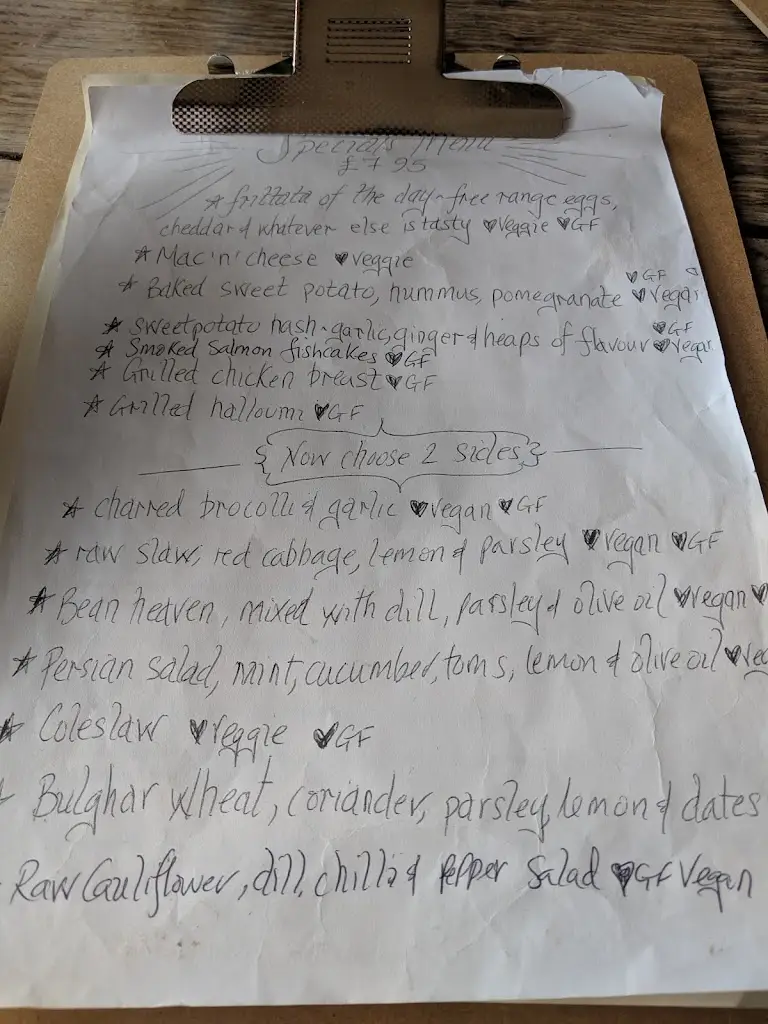 Specials Menu
£7.95
☆ frittata of the day - free range eggs,
cheddar & whatever else is tasty ♥veggie ♥GF
☆ Mac'n'cheese ♥veggie
♥GF
☆ Baked sweet potato, hummus, pomegranate ♥vegan
♥GF
☆ Sweetpotato hash - garlic, ginger & heaps of flavour ♥vegan
☆ Smoked Salmon fishcakes ♥GF
☆ Grilled chicken breast ♥GF
☆ Grilled halloumi ♥GF
{ Now choose 2 sides }
☆ charred brocolli & garlic ♥vegan ♥GF
☆ raw slaw, red cabbage, lemon & parsley ♥vegan ♥GF
☆ Bean heaven, mixed with dill, parsley & olive oil ♥vegan ♥
☆ Persian salad, mint, cucumber, toms, lemon & olive oil ♥veg
☆ Coleslaw ♥veggie ♥GF
Bulghar wheat, coriander, parsley, lemon & dates
Raw Cauliflower, dill, chilli & Pepper Salad ♥GF Vegan